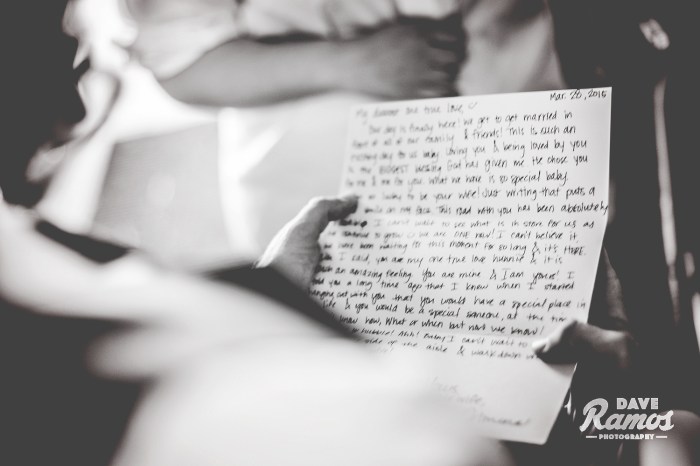 Mar. 28, 2015
My one true love
Our day is finally here! We get to get married in
front of all of our family & friends! This is such an
day for us baby. Loving you & being loved by you
is the BIGGEST blessing God has given me. He chose you
for me & me for you. What we have is so special baby.
so lucky to be your wife! Just writing that puts a
smile on my face. This road with you has been absolutely
I can't wait to see what is in store for us as
we continue to grow & we are ONE now! I can't believe it
been waiting for this moment for so long & it's HERE.
I said, you are my one true love hunnie & it is
such an amazing feeling. You are mine & I am yours! I
told you a long time ago that I knew when I started
hanging out with you that you would have a special place in
life & you would be a special someone, at the time
know how, what or when but now we know!
Ahh! Baby I can't wait to
side of the aisle & walk down
DAVE
Ramos
PHOTOGRAPHY